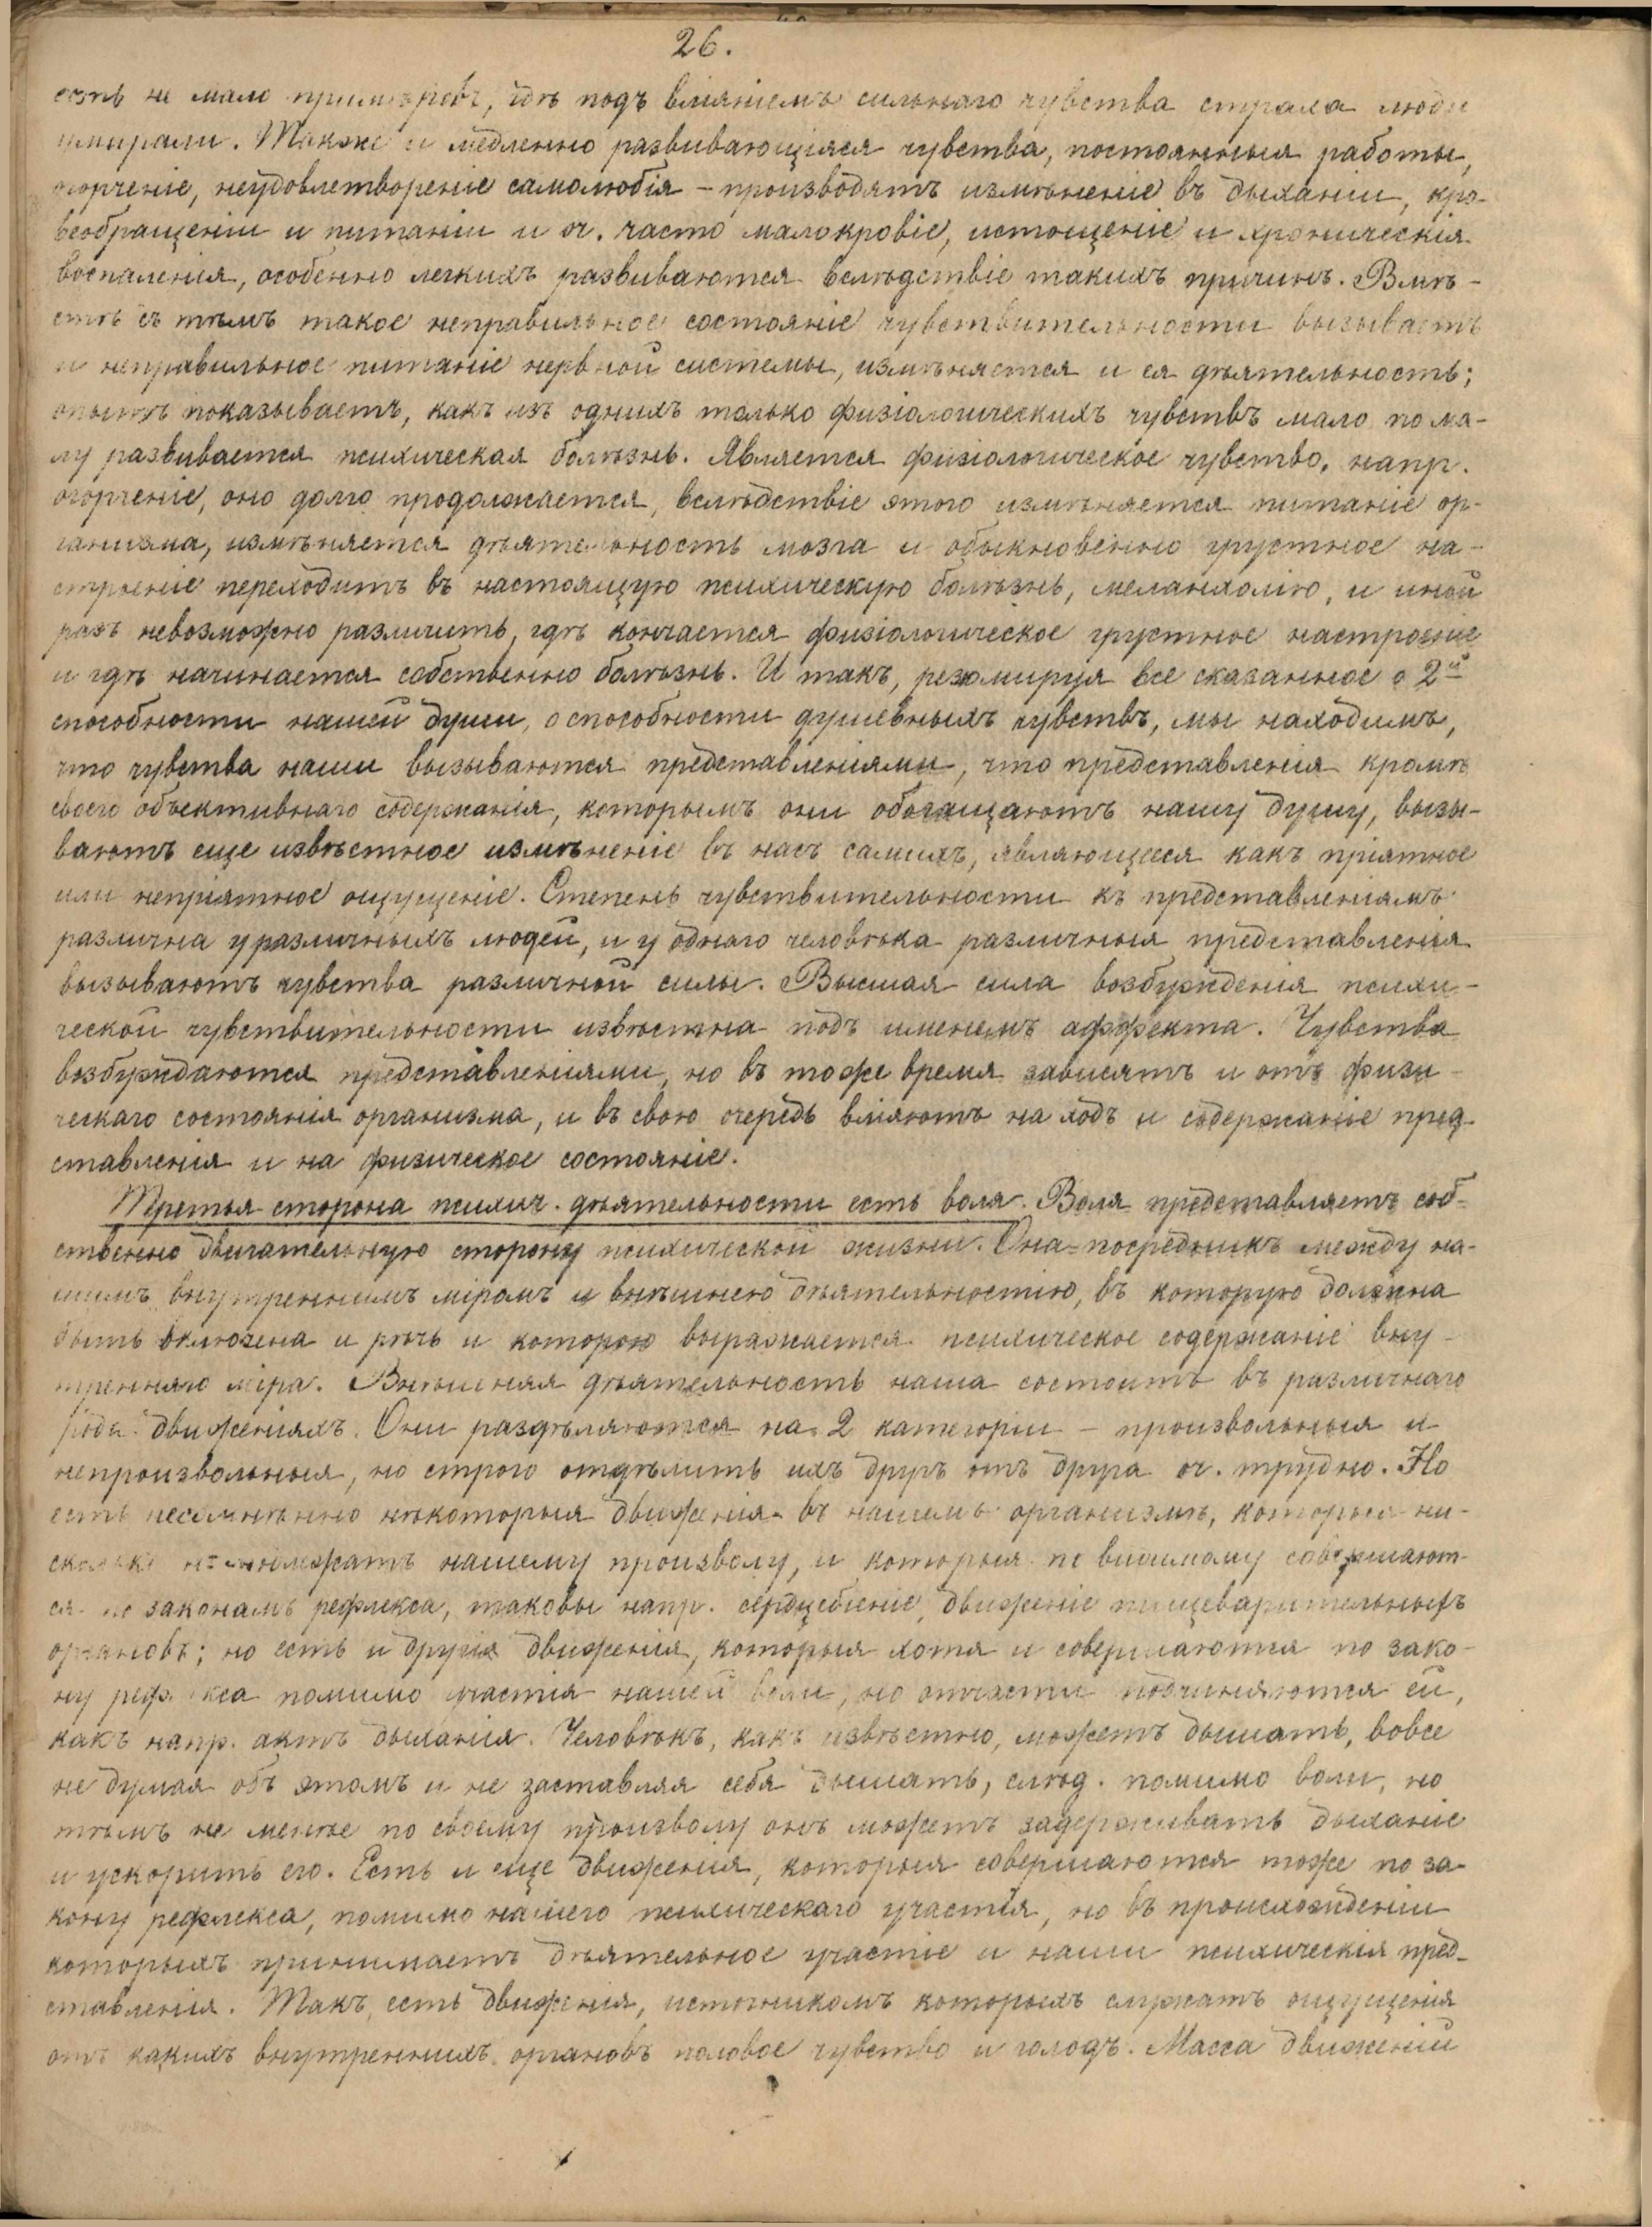 26.
есть не мало примѣровъ, гдѣ подъ вліяніемъ сильнаго чувства страха люди
умирали. Также и медленно развивающіяся чувства, постоянныя работы,
огорченіе, неудовлетвореніе самолюбія – производятъ измѣненіе въ дыханіи, кро-
веобращеніи и питаніи и оч. часто малокровіе, истощеніе и хроническія
воспаленія, особенно легкихъ развиваются вслѣдствіе такихъ причинъ. Вмѣ-
стѣ съ тѣмъ такое неправильное состояніе чувствительности вызываетъ
и неправильное питаніе нервной системы, измѣняется и ея дѣятельность;
опытъ показываетъ, какъ изъ однихъ только физіологическихъ чувствъ мало по ма-
лу развивается психическая болѣзнь. Является физіологическое чувство, напр.
огорченіе, оно долго продолжается, вслѣдствіе этого измѣняется питаніе ор-
ганизма, измѣняется дѣятельность мозга и обыкновенно грустное на-
строеніе переходитъ въ настоящую психическую болѣзнь, меланхолію, и иной
разъ невозможно различить, гдѣ кончается физіологическое грустное настроеніе
и гдѣ начинается собственно болѣзнь. И такъ, резюмируя все сказанное о 2й
способности нашей души, о способности душевныхъ чувствъ, мы находимъ,
что чувства наши вызываются представленіями, что представленія кромѣ
своего объективнаго содержанія, которымъ они обогащаютъ нашу душу, вызы-
ваютъ еще извѣстное измѣненіе въ насъ самихъ, являющееся какъ пріятное
или непріятное ощущеніе. Степень чувствительности къ представленіямъ
различна у различныхъ людей, и у однаго человѣка различныя представленія
вызываютъ чувства различной силы. Высшая сила возбужденія психи-
ческой чувствительности извѣстна подъ именемъ аффекта. Чувства
возбуждаются представленіями, но въ тоже время зависятъ и отъ физи-
ческаго состоянія организма, и въ свою очередь вліяютъ на ходъ и содержаніе пред-
ставленія и на физическое состояніе.
Третья сторона психич. дѣятельности есть воля. Воля представляетъ соб-
ственно двигательную сторону психической жизни. Она – посредникъ между на-
шимъ внутреннимъ міромъ и внѣшнею дѣятельностію, въ которую должна
быть включена и рѣчь и которою выражается психическое содержаніе вну-
тренняго міра. Внѣшняя дѣятельность наша состоитъ въ различнаго
рода движеніяхъ. Они раздѣляются на 2 категоріи – произвольныя и
непроизвольныя, но строго отдѣлить ихъ другъ отъ друга оч. трудно. Но
есть несомнѣнно нѣкоторыя движенія въ нашемъ организмѣ, которыя ни-
сколько не подлежатъ нашему произволу, и которыя по видимому совершают-
ся по законамъ рефлекса, таковы напр. сердцебіеніе, движеніе пищеварительныхъ
органовъ; но есть и другія движенія, которыя хотя и совершаются по зако-
ну рефлекса помимо участія нашей воли, но отчасти подчиняются ей,
какъ напр. актъ дыханія. Человѣкъ, какъ извѣстно, можетъ дышать, вовсе
не думая объ этомъ и не заставляя себя дышать, слѣд. помимо воли, но
тѣмъ не менѣе по своему произволу онъ можетъ задерживать дыханіе
и ускорить его. Есть и еще движенія, которыя совершаются тоже по за-
кону рефлекса, помимо нашего психическаго участія, но въ происхожденіи
которыхъ принимаетъ дѣятельное участіе и наши психическія пред-
ставленія. Такъ, есть движенія, источникомъ которыхъ служатъ ощущенія
отъ какихъ внутреннихъ органовъ половое чувство и голодъ. Масса движеній